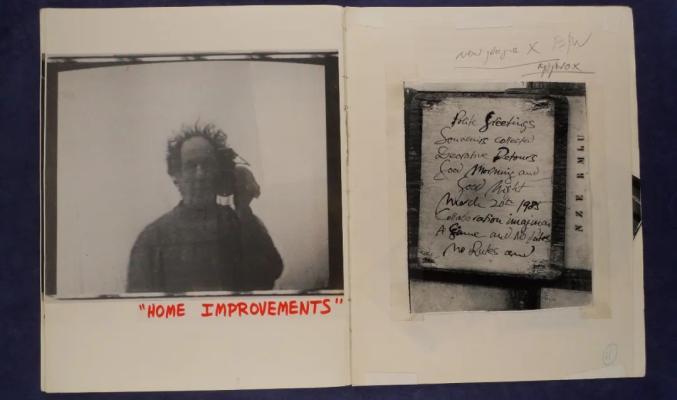 "HOME IMPROVEMENTS"
New X B/W
approx
Polite Greetings
Souvenirs collected
Decorative Detours
Good Morning and
Good Night
March 20th 1985
Collaboration
A Game and No
No Rules and
NZE RMLU